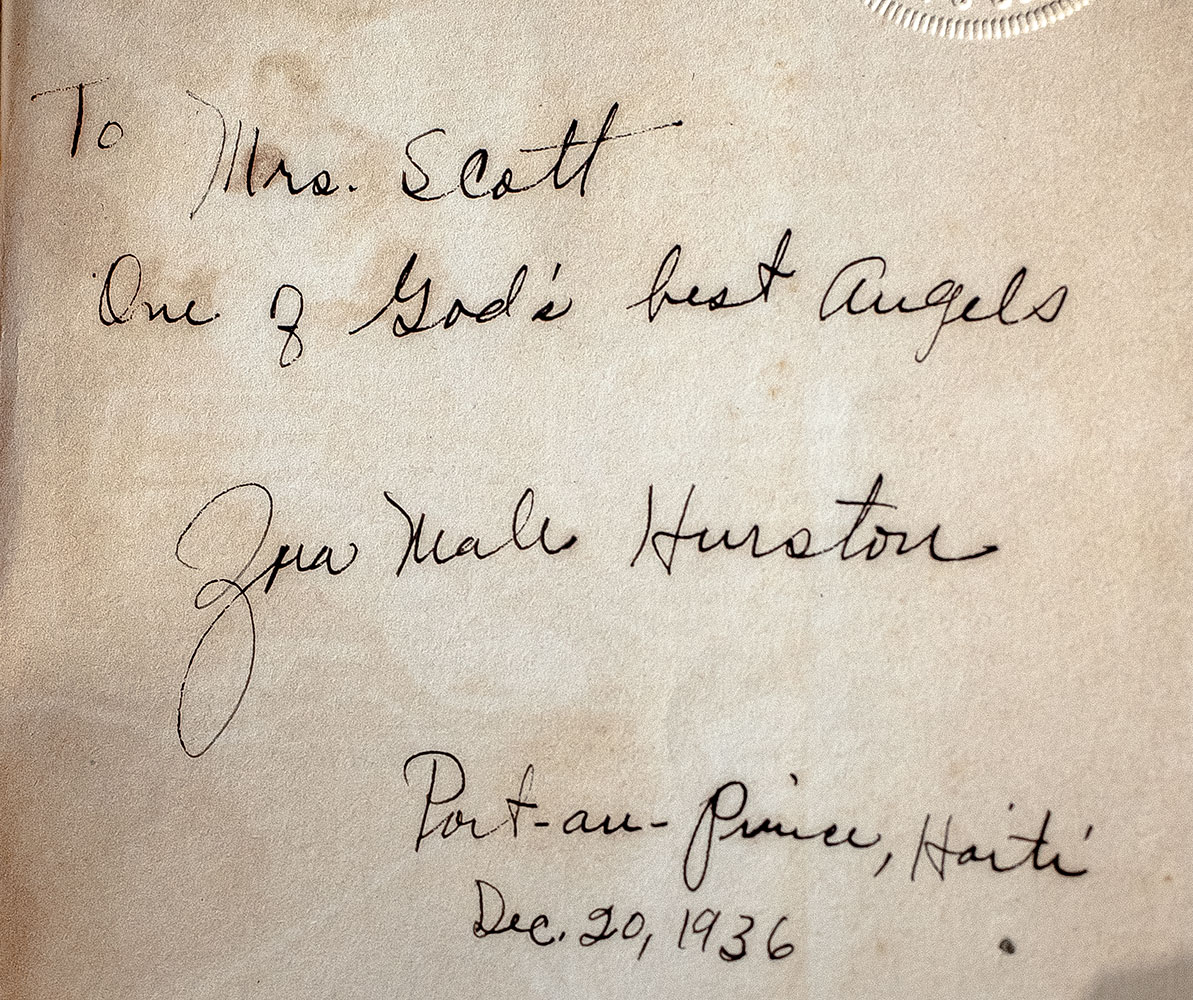 To Mrs. Scott
One of God's best Angels
Zora Neale Hurston
Port-au-Prince, Haiti
Dec. 20, 1936